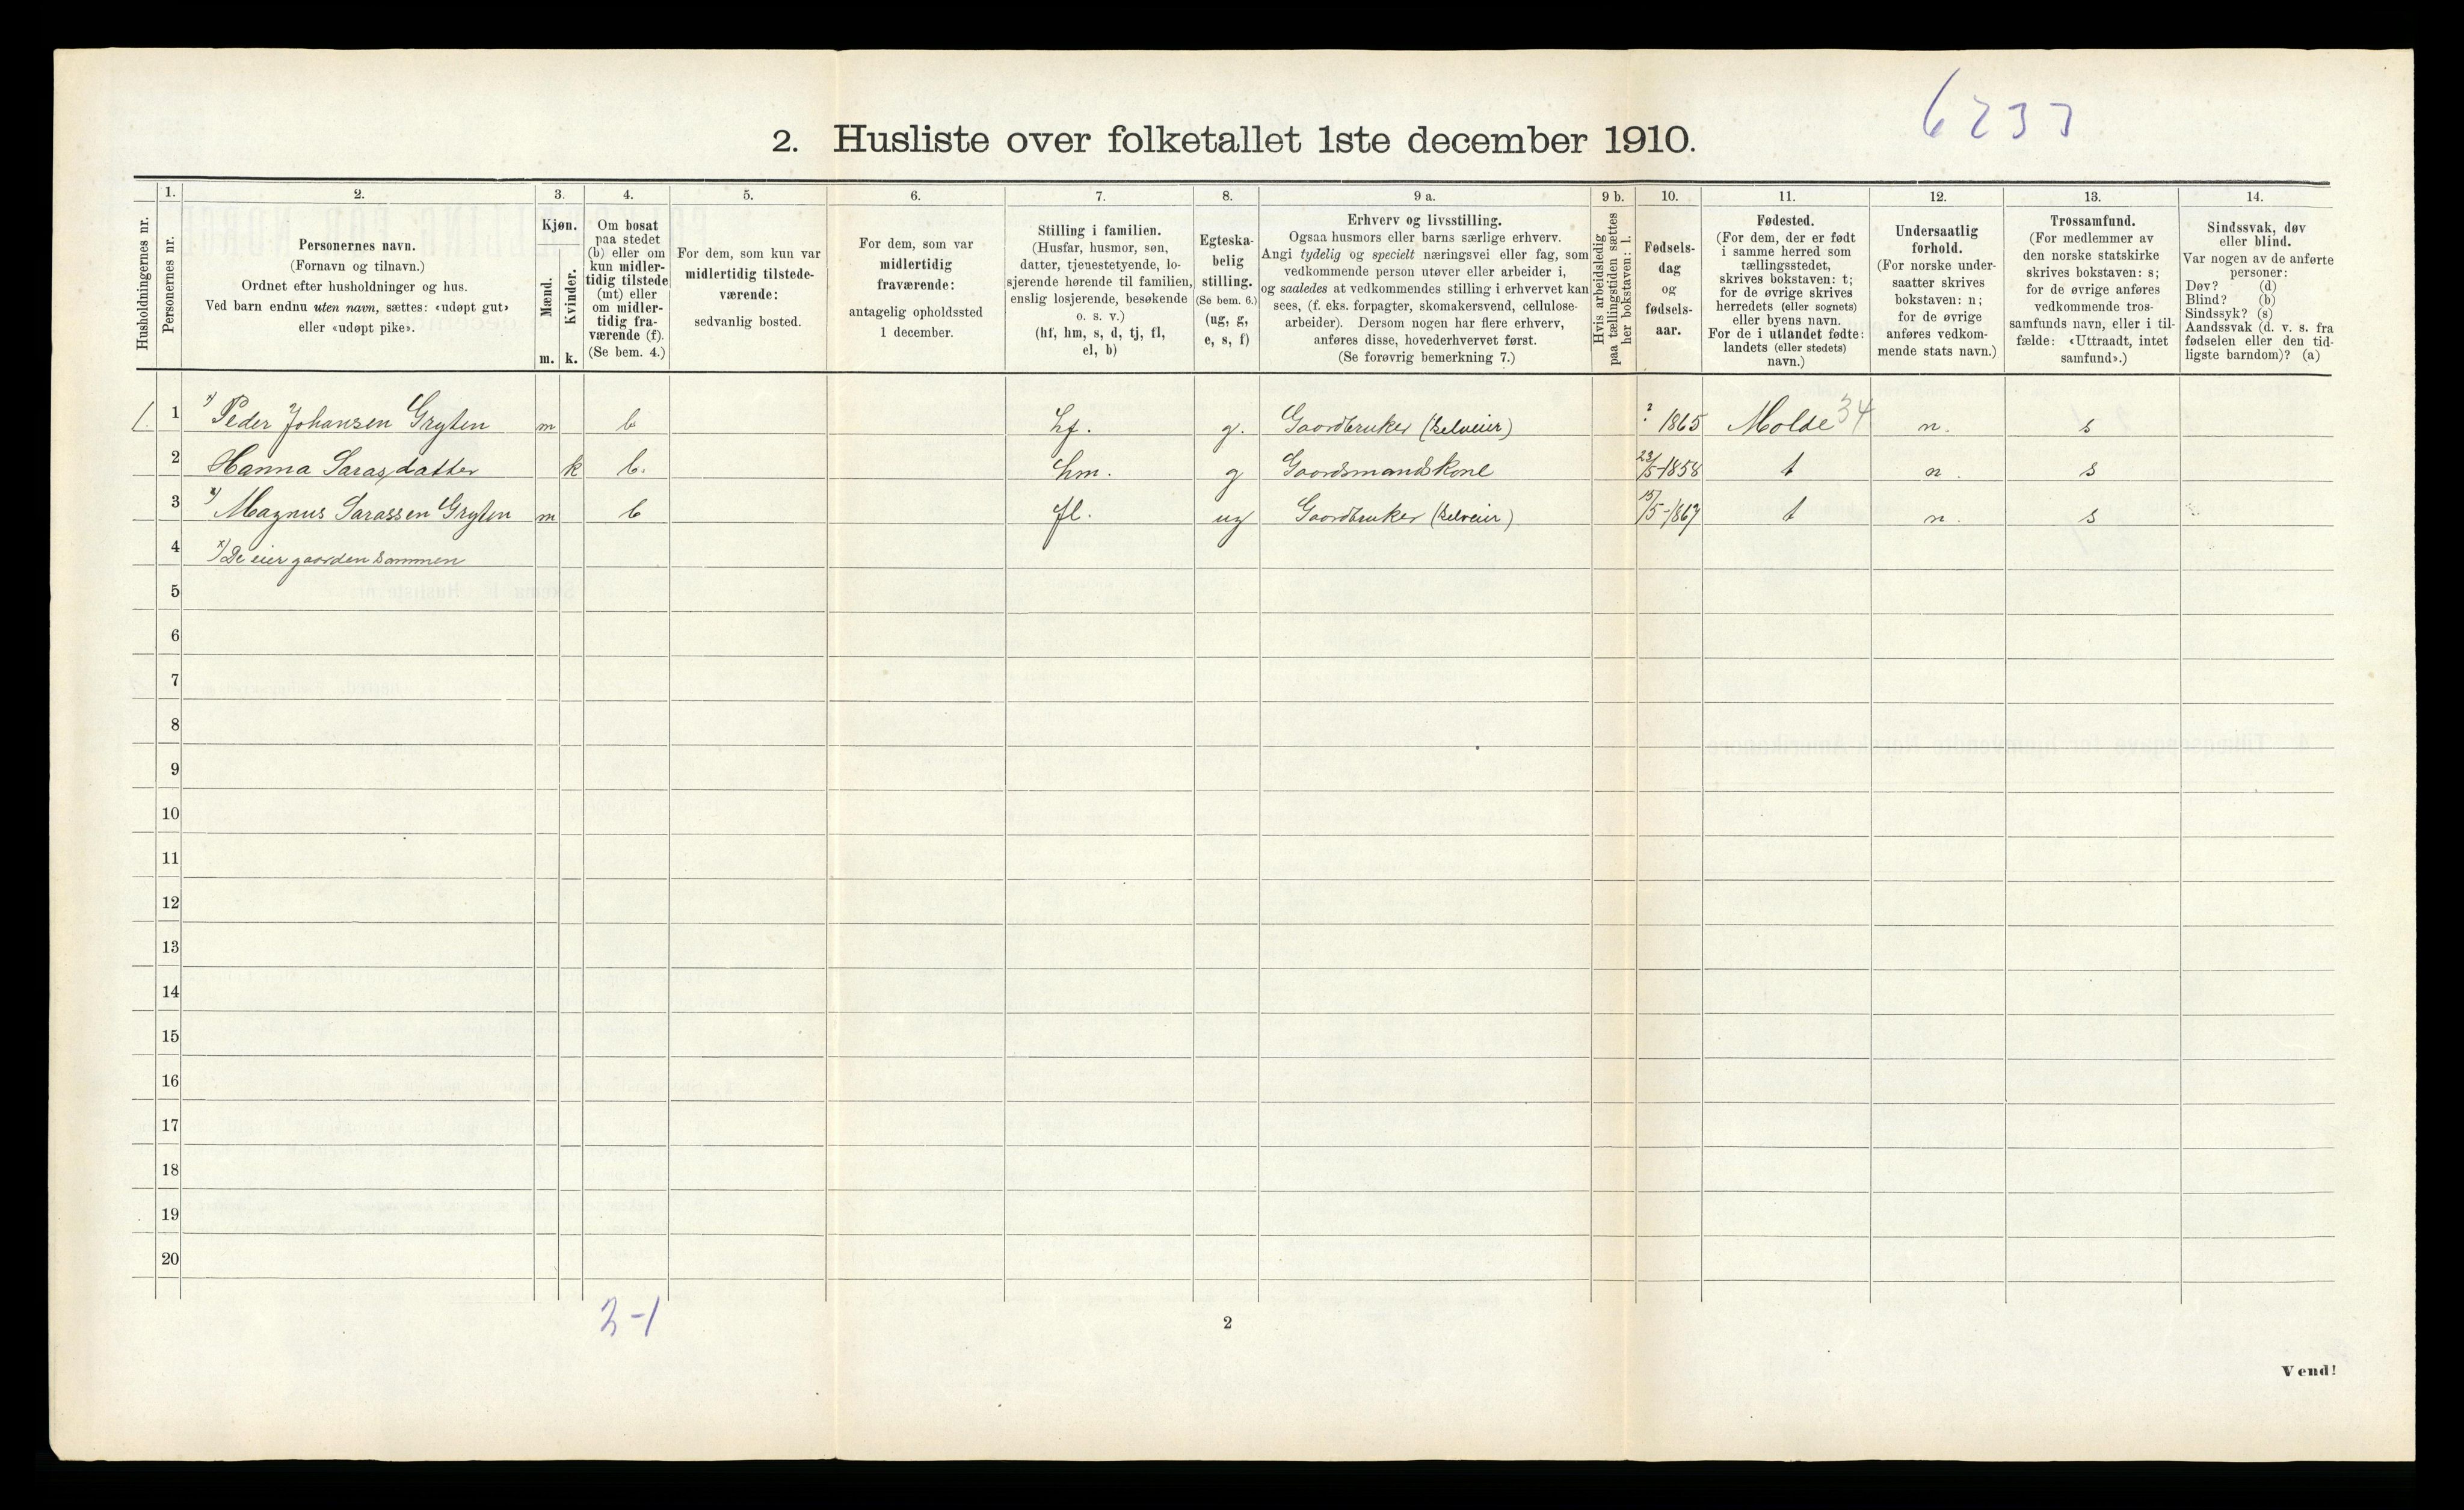 6233
2. Husliste over folketallet 1ste december 1910.
Husholdningernes nr.
1.
Personernes nr.
2.
Personernes navn.
(Fornavn og tilnavn.)
Ordnet efter husholdninger og hus.
Ved barn endnu uten navn, sættes: «udøpt gut»
eller «udøpt pike».
3.
Kjøn.
Mænd.
m.
Kvinder.
k.
4.
Om bosat
paa stedet
(b) eller om
kun midler-
tidig tilstede
(mt) eller
om midler-
tidig fra-
værende (f).
(Se bem. 4.)
5.
For dem, som kun var
midlertidig tilstede-
værende:
sedvanlig bosted.
6.
For dem, som var
midlertidig
fraværende:
antagelig opholdssted
1 december.
7.
Stilling i familien.
(Husfar, husmor, søn,
datter, tjenestetyende, lo-
sjerende hørende til familien,
enslig losjerende, besøkende
o. s. v.)
(hf, hm, s, d, tj, fl,
el, b)
8.
Egteska-
belig
stilling.
(Se bem. 6.)
(ug, g,
e, s, f)
9 a.
Erhverv og livsstilling.
Ogsaa husmors eller barns særlige erhverv.
Angi tydelig og specielt næringsvei eller fag, som
vedkommende person utøver eller arbeider i,
og saaledes at vedkommendes stilling i erhvervet kan
sees, (f. eks. forpagter, skomakersvend, cellulose-
arbeider). Dersom nogen har flere erhverv,
anføres disse, hovederhvervet først.
(Se forøvrig bemerkning 7.)
9 b.
Hvis arbeidsledig
paa tællingstiden sættes
her bokstaven: l.
10.
Fødsels-
dag
og
fødsels-
aar.
11.
Fødested.
(For dem, der er født
i samme herred som
tællingsstedet,
skrives bokstaven: t;
for de øvrige skrives
herredets (eller sognets)
eller byens navn.
For de i utlandet fødte:
landets (eller stedets)
navn.)
12.
Undersaatlig
forhold.
(For norske under-
saatter skrives
bokstaven: n;
for de øvrige
anføres vedkom-
mende stats navn.)
13.
Trossamfund.
(For medlemmer av
den norske statskirke
skrives bokstaven: s;
for de øvrige anføres
vedkommende tros-
samfunds navn, eller i til-
fælde: «Uttraadt, intet
samfund».)
14.
Sindssvak, døv
eller blind.
Var nogen av de anførte
personer:
Døv? (d)
Blind? (b)
Sindssyk? (s)
Aandssvak (d. v. s. fra
fødselen eller den tid-
ligste barndom)? (a)
1. 1 x) Peder Johansen Gryten m b hf. g. Gaardbruker (Selveier) ? 1865 Molde 34 n. s
2 Hanna Sarasdatter k b. hm. g Gaardsmandskone 23/5-1858 t n. s
3 x) Magnus Sarassen Gryten m b fl. ug Gaardbruker (Selveier) 15/5-1867 t n. s
4 x) De eier gaarden sammen
5
6
7
8
9
10
11
12
13
14
15
16
17
18
19
20
2-1
2
Vend!